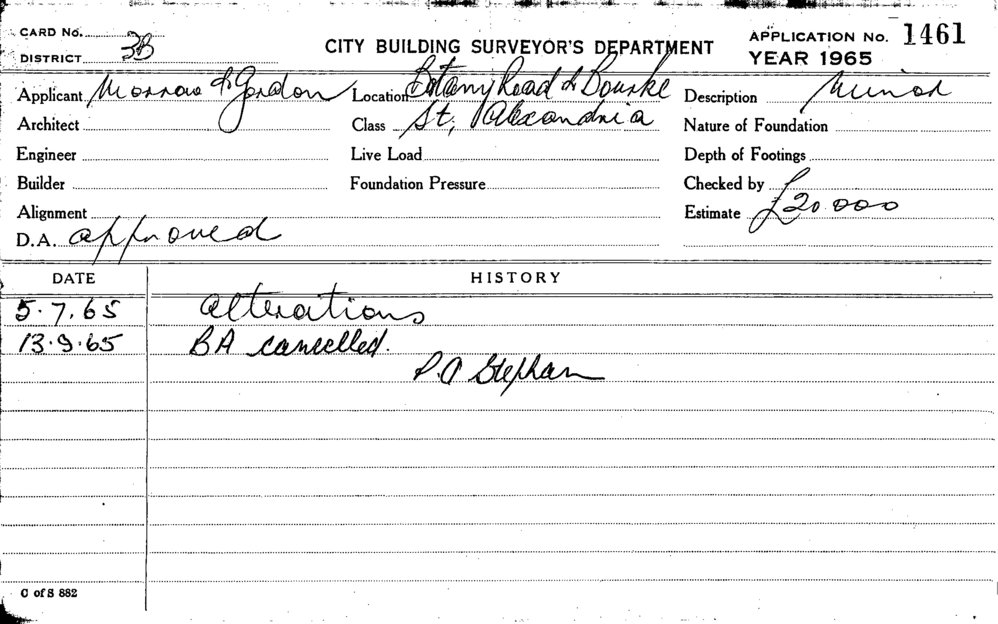 CARD No.
DISTRICT 3B
CITY BUILDING SURVEYOR'S DEPARTMENT
APPLICATION No. 1461
YEAR 1965
Applicant Morrow & Gordon
Location Botany Road & Bourke
Description Minor
Architect
Class St, Alexandria
Nature of Foundation
Engineer
Live Load
Depth of Footings
Builder
Foundation Pressure
Checked by
Alignment
Estimate £20 000
D.A. approved
DATE
HISTORY
5.7.65 alterations
13.9.65 BA cancelled.
P.O Stephan
C of S 882